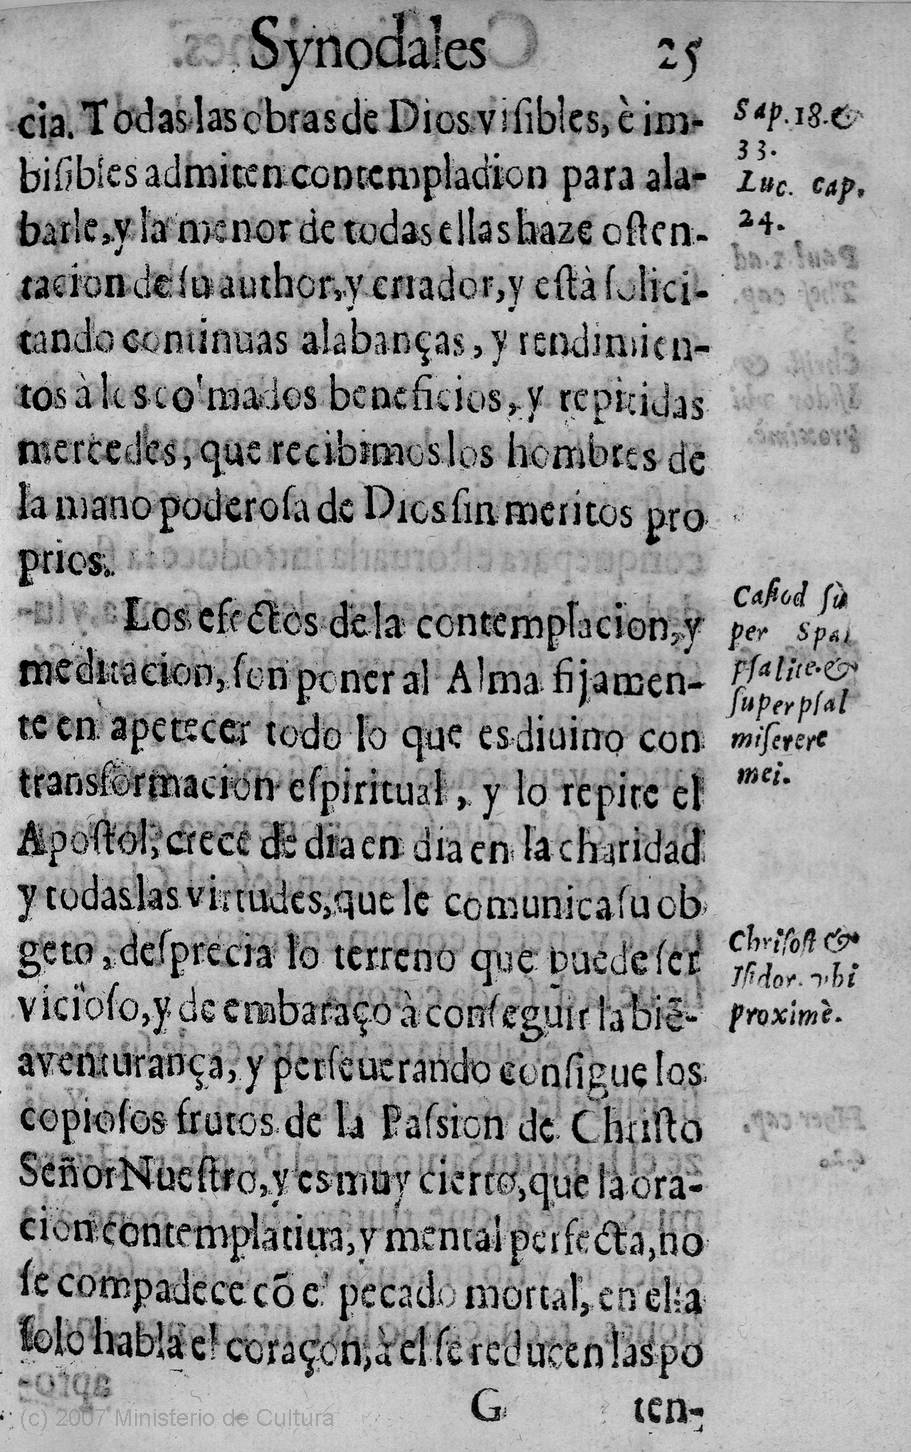 Synodales 25
cia. Todas las obras de Dios visibles, è im-
bisibles admiten contempladion para ala-
barle, y la menor de todas ellas haze osten-
tacion de su author, y criador, y està solici-
tando continuas alabanças, y rendimien-
tos à los colmados beneficios, y repitidas
mercedes, que recibimos los hombres de
la mano poderosa de Dios sin meritos pro
prios.
Los efectos de la contemplacion, y
meditacion, son poner al Alma fijamen-
te en apetecer todo lo que es diuino con
transformacion espiritual, y lo repite el
Apostol, crece de dia en dia en la charidad
y todas las virtudes, que le comunica su ob
geto, desprecia lo terreno que puede ser
vicioso, y de embaraço à conseguir la biē-
aventurança, y perseuerando consigue los
copiosos frutos de la Passion de Christo
Señor Nuestro, y es muy cierto, que la ora-
cion contemplatiua, y mental perfecta, no
se compadece cō el pecado mortal, en ella
solo habla el coraçon, à el se reducen las po
G ten-
Sap. 18. &
33.
Luc. cap.
24.
Casiod sù
per Spal
psalite. &
super psal
miserere
mei.
Chrisost &
Isidor. vbi
proximè.
(c) 2007 Ministerio de Cultura